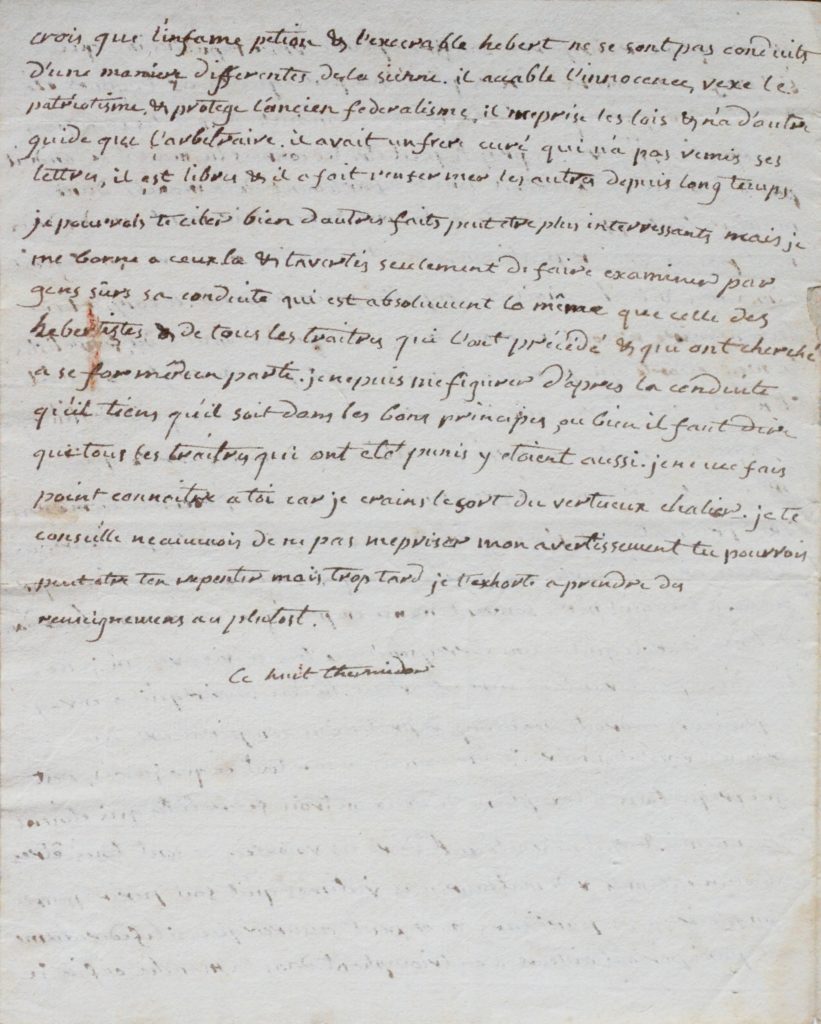 crois que l'infame petion & l'execrable hebert ne se sont pas conduits
d'une maniere differentes de la sienne. il accable l'innocence, vexe le
patriotisme, & protege l'ancien federalisme, il meprise les lois & n'a d'autre
guide que l'arbitraire. il avait un frere curé qui n'a pas remis ses
lettres, il est libre & il a fait renfermer les autres depuis long temps.
je pourrois te citer bien d'autres faits peut etre plus interressants mais je
me borne a ceux la & t'avertis seulement de faire examiner par
gens sûrs sa conduite qui est absolument la même que celle des
hebertistes & de tous les traitres qui l'ont précédé & qui ont cherché
a se former un parti. je ne puis me figurer d'apres la conduite
qu'il tiens qu'il soit dans les bons principes, ou bien il faut dire
que tous les traitres qui ont eté punis y etoient aussi. je ne me fais
point connaitre a toi car je crains le sort du vertueux chalier. je te
conseille neanmois de ne pas mepriser mon avertissement tu pourrois
peut etre t'en repentir mais trop tard je t'exhorte a prendre des
renseignemens au plutost.
Ce huit thermidor